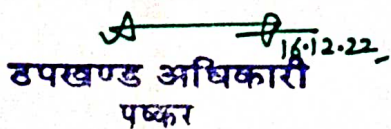 16.12.22
उपखण्ड अधिकारी
पुष्कर